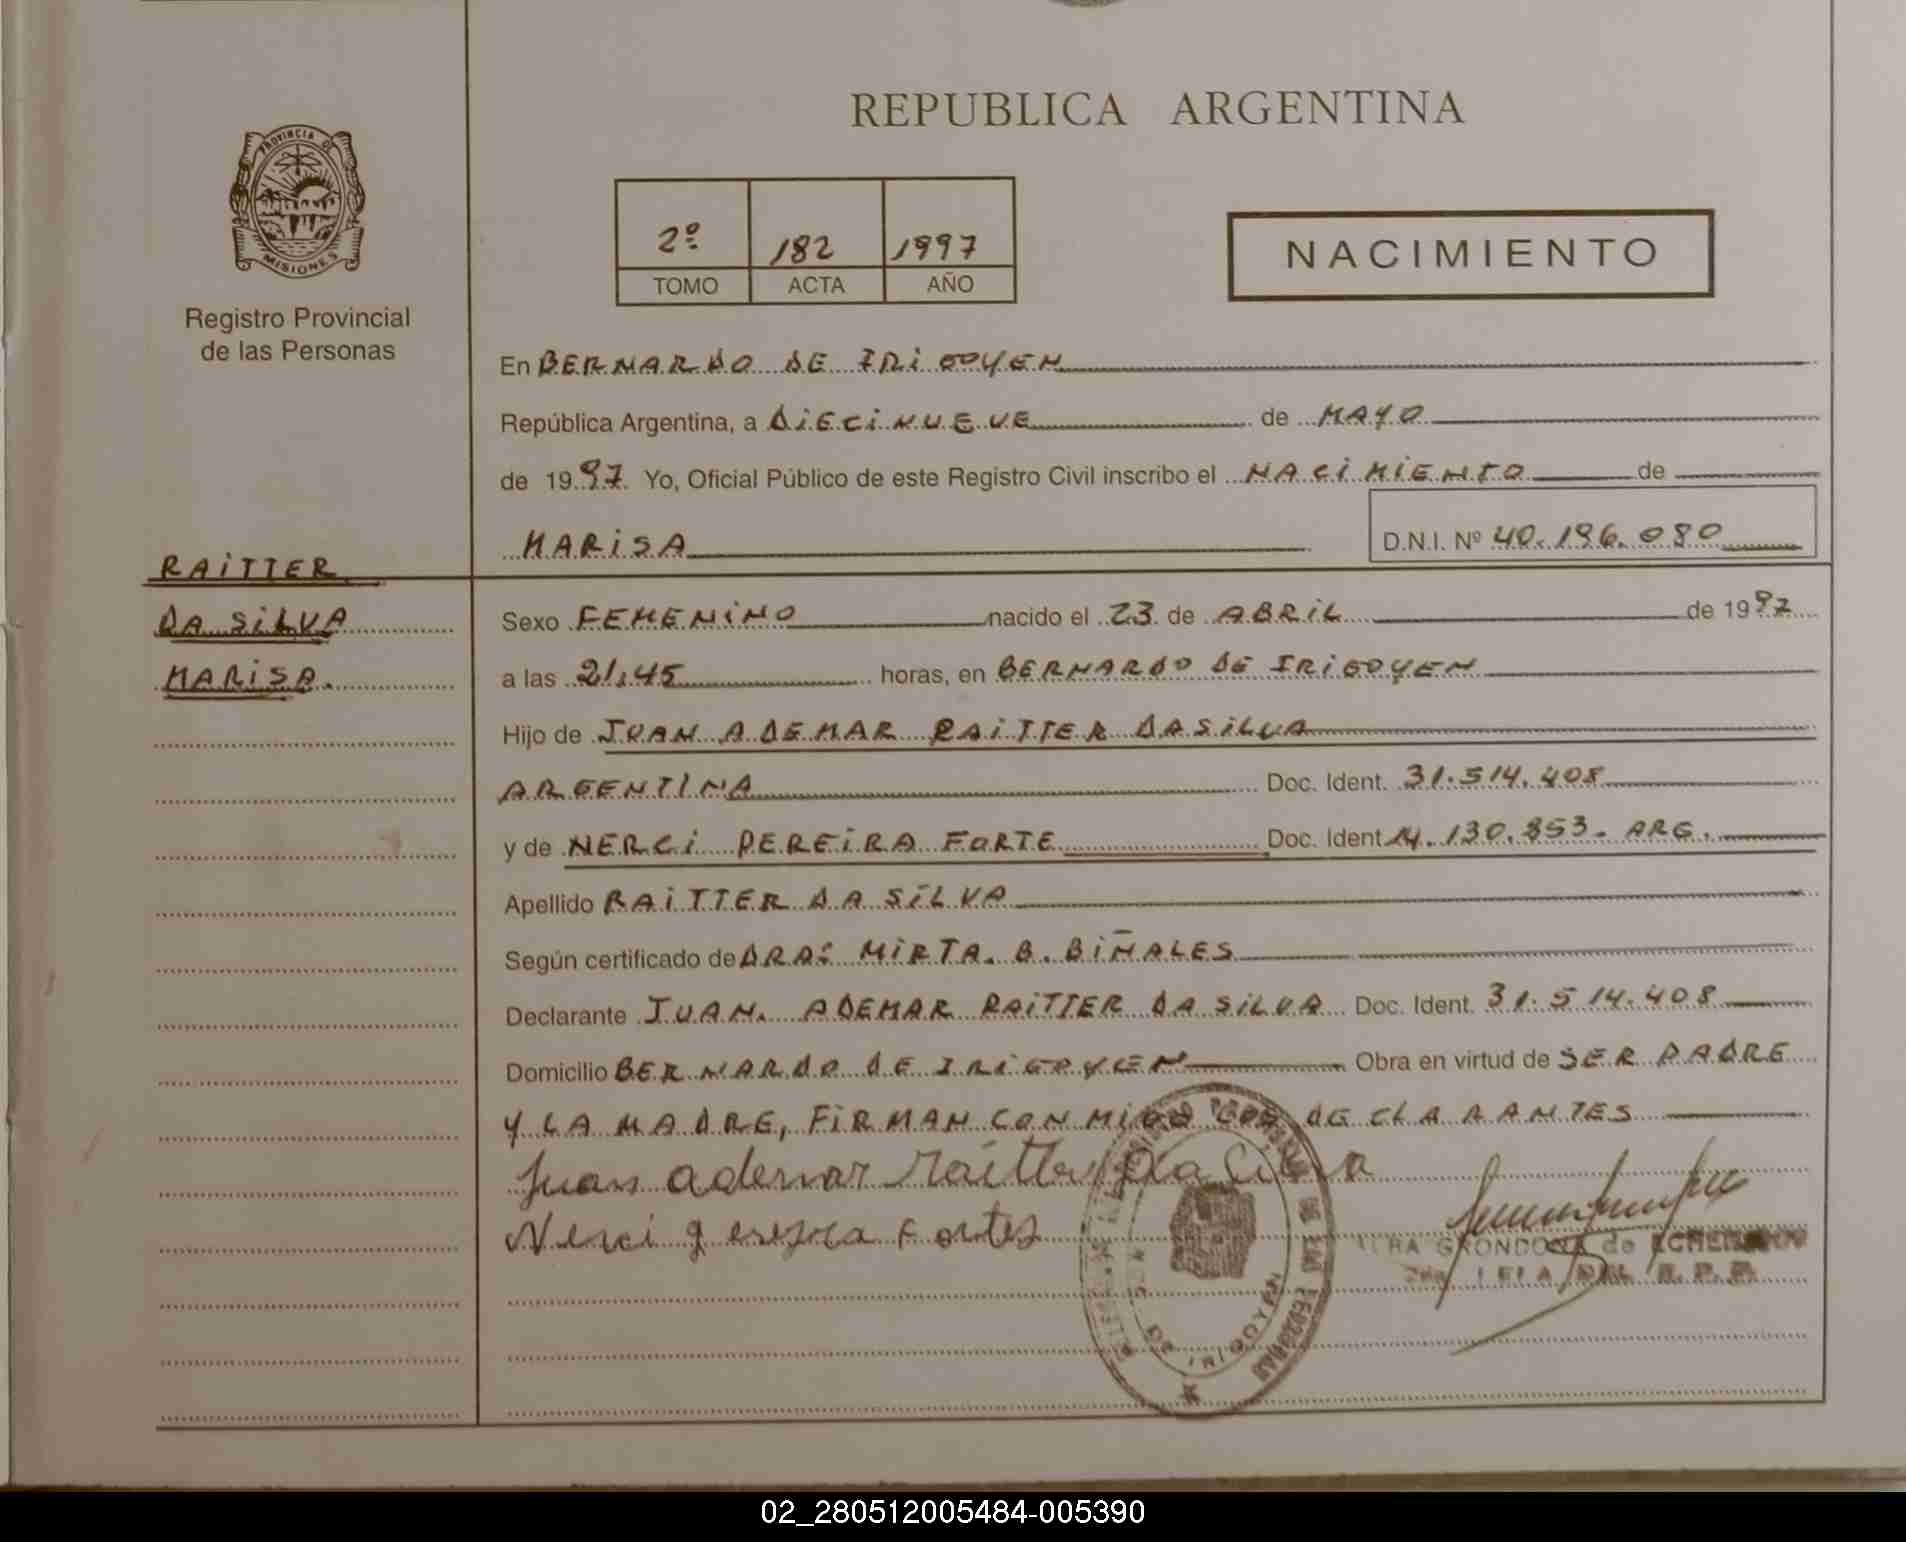 REPUBLICA ARGENTINA
PROVINCIA DE
MISIONES
Registro Provincial
de las Personas
2º 182 1997
TOMO ACTA AÑO
NACIMIENTO
En BERNARDO DE IRIGOYEN
República Argentina, a DIECINUEVE de MAYO
de 1997. Yo, Oficial Público de este Registro Civil inscribo el NACIMIENTO de
MARISA D.N.I. Nº 40.196.080
RAITTER
DA SILVA
MARISA.
Sexo FEMENINO nacido el 23 de ABRIL de 1997
a las 21:45 horas, en BERNARDO DE IRIGOYEN
Hijo de JUAN ADEMAR RAITTER DA SILVA
ARGENTINA Doc. Ident. 31.514.408
y de NERCI PEREIRA FORTE Doc. Ident 14.130.853. ARG.
Apellido RAITTER DA SILVA
Según certificado de DRA: MIRTA. B. BIÑALES
Declarante JUAN. ADEMAR RAITTER DA SILVA Doc. Ident. 31.514.408
Domicilio BERNARDO DE IRIGOYEN Obra en virtud de SER PADRE
Y LA MADRE, FIRMAN CONMIGO LOS DECLARANTES
Juan ademar raitter da Silva
Nerci Pereira Fortes
GRONDONA de
DEL R.P.P.
DE IRIGOYEN
DE LAS PERSONAS
02_280512005484-005390